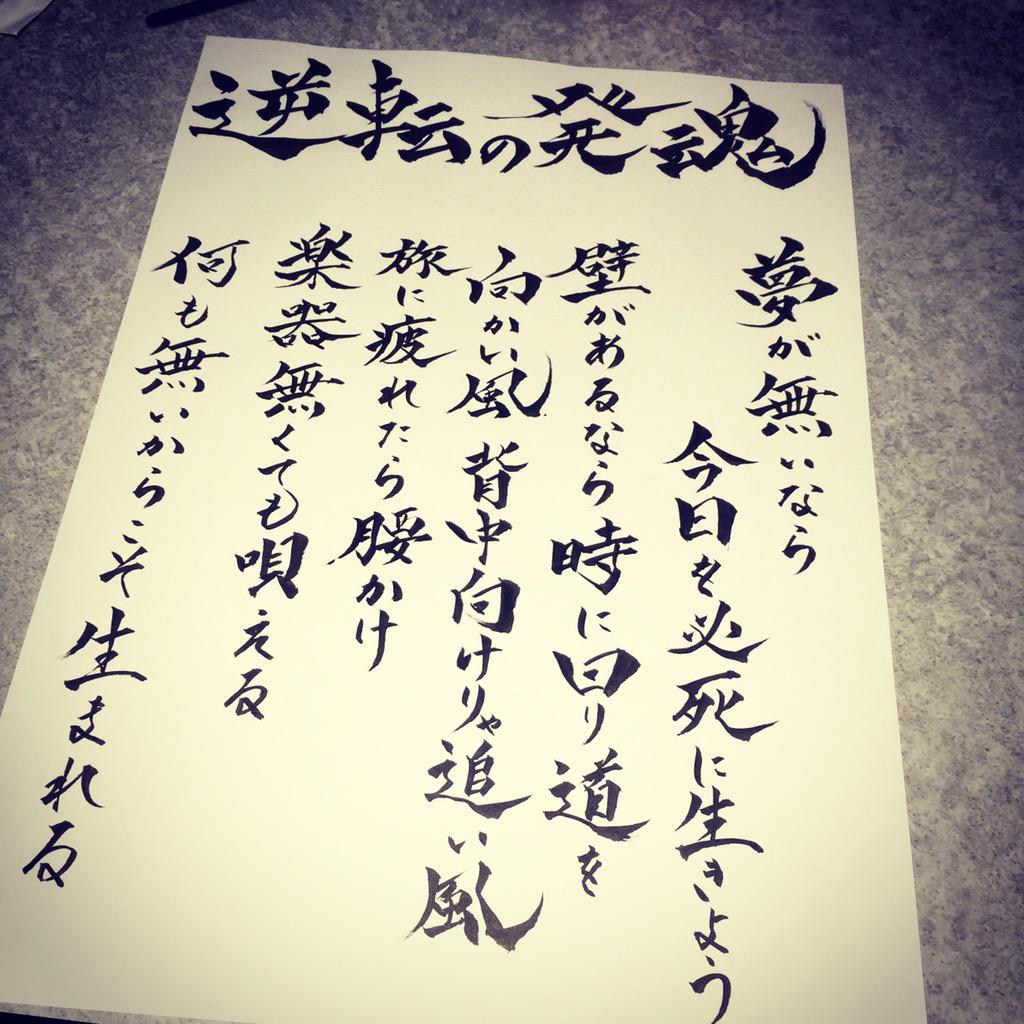 逆転の発魂
夢が無いなら
今日を必死に生きよう
壁があるなら時に回り道を
向かい風 背中向けりゃ追い風
旅に疲れたら腰かけ
楽器無くても唄える
何も無いからこそ生まれる